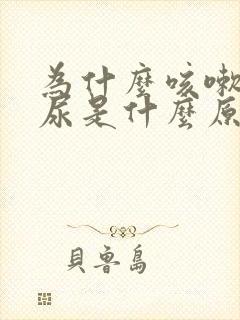 為什麼咳嗽
尿是什麼原
貝魯島